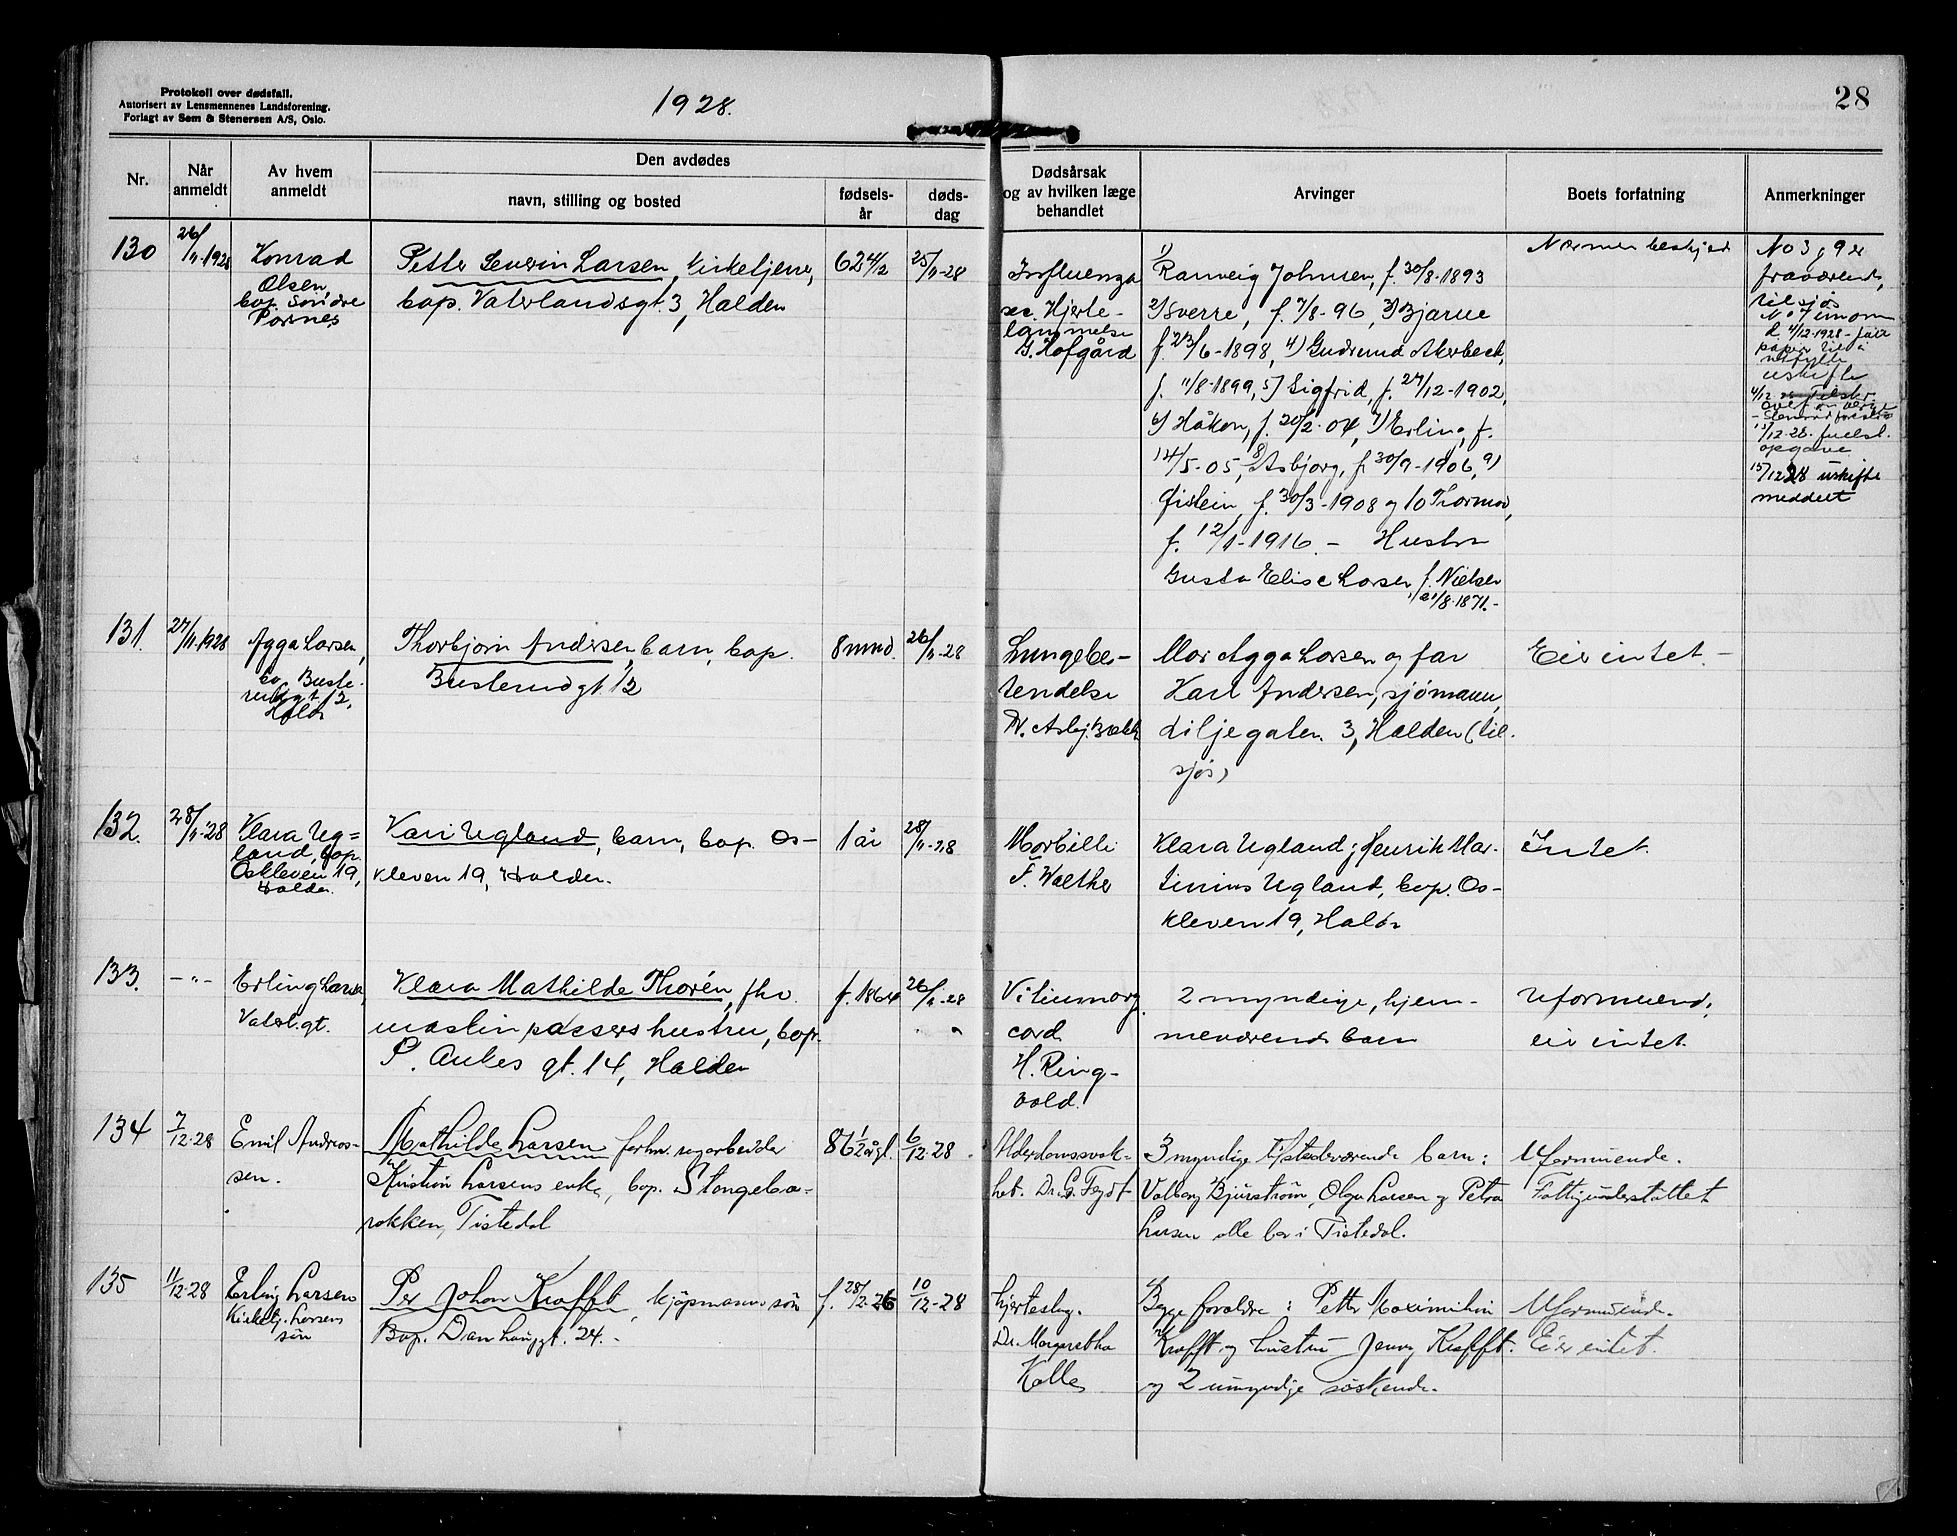 Protokoll over dødsfall.
Autorisert av Lensmennenes Landsforening.
Forlagt av Sem & Stenersen A/S, Oslo.
1928.
28
Nr.
Når
anmeldt
Av hvem
anmeldt
Den avdødes
navn, stilling og bosted
fødsels-
år
døds-
dag
Dødsårsak
og av hvilken læge
behandlet
Arvinger
Boets forfatning
Anmerkninger
130
26/11-1928
Konrad
Olsen,
bop. Søndre
Petter Severin Larsen, kirketjener,
bop. Vaterlandsgt. 3, Halden
62
25/11-28
Influenza
sec. Hjerte-
lammelse
G. Hofgård
1)
Ranveig Johnsen, f. 30/8-1893
2) Sverre, f. 7/8-96, 3) Bjarne
f. 23/6-1898, 4) Gudrund
f. 11/8-1899, 5) Sigfrid, f. 27/12-1902,
6) Håkon, f. 20/2-04, 7) Erling, f.
14/5-05, 8) Asbjorg, f. 30/9-1906, 9)
Øistein, f. 30/3-1908 og 10 Thormod,
f. 12/11-1916. - Hustru
Gusta Elise Larsen, f. Nielsen
21/8-1871.-
Nærmer beskjed
No 3 og 9 er
fraværende,
til sjøs
4/12-1928 - får
papir til å
utfylde
uskifte
4/12
opgave
15/12 28 uskifte
meddelt
131.
27/11-1928
Agga Larsen,
bop. Buste-
rudgt 12,
Halden
Thorbjørn Andersen, barn, bop.
Busterudgt 12
8 mnd.
26/11-28
Lungebe-
tendelse
Mor Agga Larsen og far
Karl Andersen, sjømann,
Liljegaten 3, Halden (til-
sjøs)
Eier intet. -
132.
28/11-28
Klara Ug=
land, bop.
Oskleven 19,
Halden.
Kari Ugland, barn, bop. Os-
kleven 19, Halden.
1 år
28/11-28
Morbilli
F. Walther
Klara Ugland; Henrik Mar-
tinius Ugland, bop. Os-
kleven 19, Halden
Intet.
133.
- " -
Erling Larsen,
Vaterl. gt.
Klara Mathilde Thorén, fhv.
maskinpassers hustru, bop.
P. Ankes gt. 14, Halden
f. 1864
26/11-28
Vitium org.
cord.
H. Ring-
vold.
2 myndige, hjem-
meværende barn
Uformuende;
eier intet.
134
7/12-28
Emil Andreas-
sen.
Mathilde Larsen forhv. sagarbeider
Kristian Larsens enke, bop. Stangeba-
rakken, Tistedal
86 1/2 år gl.
6/12-28
Alderdomssvak-
het. Dr. G. Feydt
3 myndige tilstedeværende barn:
Valborg Bjurström, Olga Larsen og Petra
Larsen alle bor i Tistedal.
Uformuende.
Fattigunderstøttet
135
11/12-28
Erling Larsen
Kirketj. Larsens
sön
Per Johan Krafft, kjøpmanns søn
Bop. Danhauggt. 24.-
f. 28/2-26
10/12-28
Hjerteslag.
Dr. Margaretha
Kolle
Begge foreldre: Petter Maximilian
Krafft og hustru Jenny Krafft.
og 2 umyndige søskende.
Uformuende.
Eier intet.